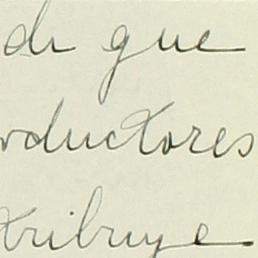 de que
oductores
tribuye